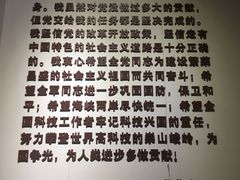 身。我虽然对党没做过多大的贡献，
但党交给我的任务都是坚决完成的。
我坚信党的改革开放政策，坚信走有
中国特色的社会主义道路是十分正确
的。我衷心希望全党同志为建设繁荣
昌盛的社会主义祖国而共同奋斗；希望
全军同志进一步巩固国防，保卫和
平；希望海峡两岸尽快统一；希望全
国科技工作者牢记科技兴国的重任，
努力攀登世界高科技的崇山峻岭，为
国争光，为人类进步多做贡献！